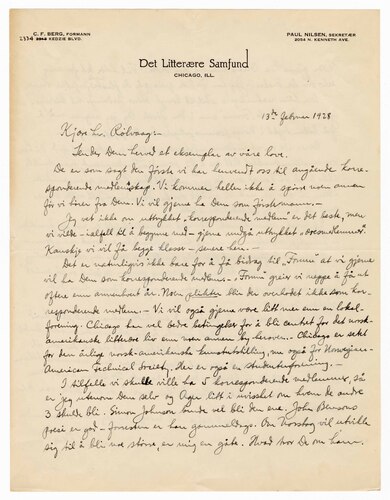 C. F. BERG, FORMANN
2334 KEDZIE BLVD.
PAUL NILSEN, SEKRETÆR
2054 N. KENNETH AVE.
Det Litterære Samfund
CHICAGO, ILL.
13de februar 1928
Kjære hr. Rölvaag:
Sender Dem herved et eksemplar av våre love.
De er som sagt den förste vi har henvendt oss til angående korre-
sponderende medlemskap. Vi kommer heller ikke å spörre noen annen
för vi hører fra Dem. Vi vil gjerne ha Dem som
Jeg vet ikke om uttrykket "korresponderende medlem" er det beste, men
vi vilde - ialfall til å begynne med - gjerne undgå uttrykket "æresmedlemmer".
Kanskje vi vil få begge klasser - senere hen.
Det er naturligvis ikke bare for å få bidrag til "Forum" at vi gjerne
vil ha Dem som korresponderende medlem. - "Forum" greier vi neppe å få ut
oftere enn annenhvert år. Noen plikter blir der overhodet ikke som kor-
responderende medlem. - Vi vil også gjerne være litt mer enn en lokal-
forening. Chicago har vel bedre betingelser for å bli centret for det norsk-
amerikanske litterære liv enn noen annen by herover. - Chicago er setet
for den årlige norsk-amerikanske kunstutstilling, nu også for Norwegian-
American Technical Society. Her er også en studenterforening. -
I tilfelle vi skulle ville ha 5 korresponderende medlemmer, så
er jeg utenom Dem selv og Ager litt i uvisshet om hvem de andre
3 skulde bli. Simon Johnson burde vel bli den ene. John Bensons
poesi er god - forresten er han gammeldags. Om Norstog vil utvikle
sig til å bli noe större, er mig en gåte. Hvad tror De om ham.